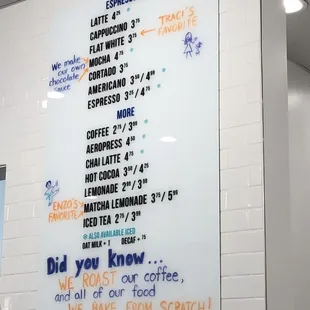 ESPRESSO
LATTE 4.25
CAPPUCCINO 3.75
FLAT WHITE 3.75
MOCHA 4.75
CORTADO 3.75
AMERICANO 3.50/4.00
ESPRESSO 3.25/4.75
TRACI'S
FAVORITE
We make
our own
chocolate
sauce
MORE
COFFEE 2.75/3.00
AEROPRESS 4.50
CHAI LATTE 4.75
HOT COCOA 3.50/4.25
LEMONADE 2.00/3.00
MATCHA LEMONADE 3.75/5.00
ICED TEA 2.75/3.00
ENZO'S
FAVORITE
* ALSO AVAILABLE ICED
OAT MILK + 1 DECAF + .75
Did you know...
WE ROAST our coffee,
and all of our food
WE MAKE FROM SCRATCH!